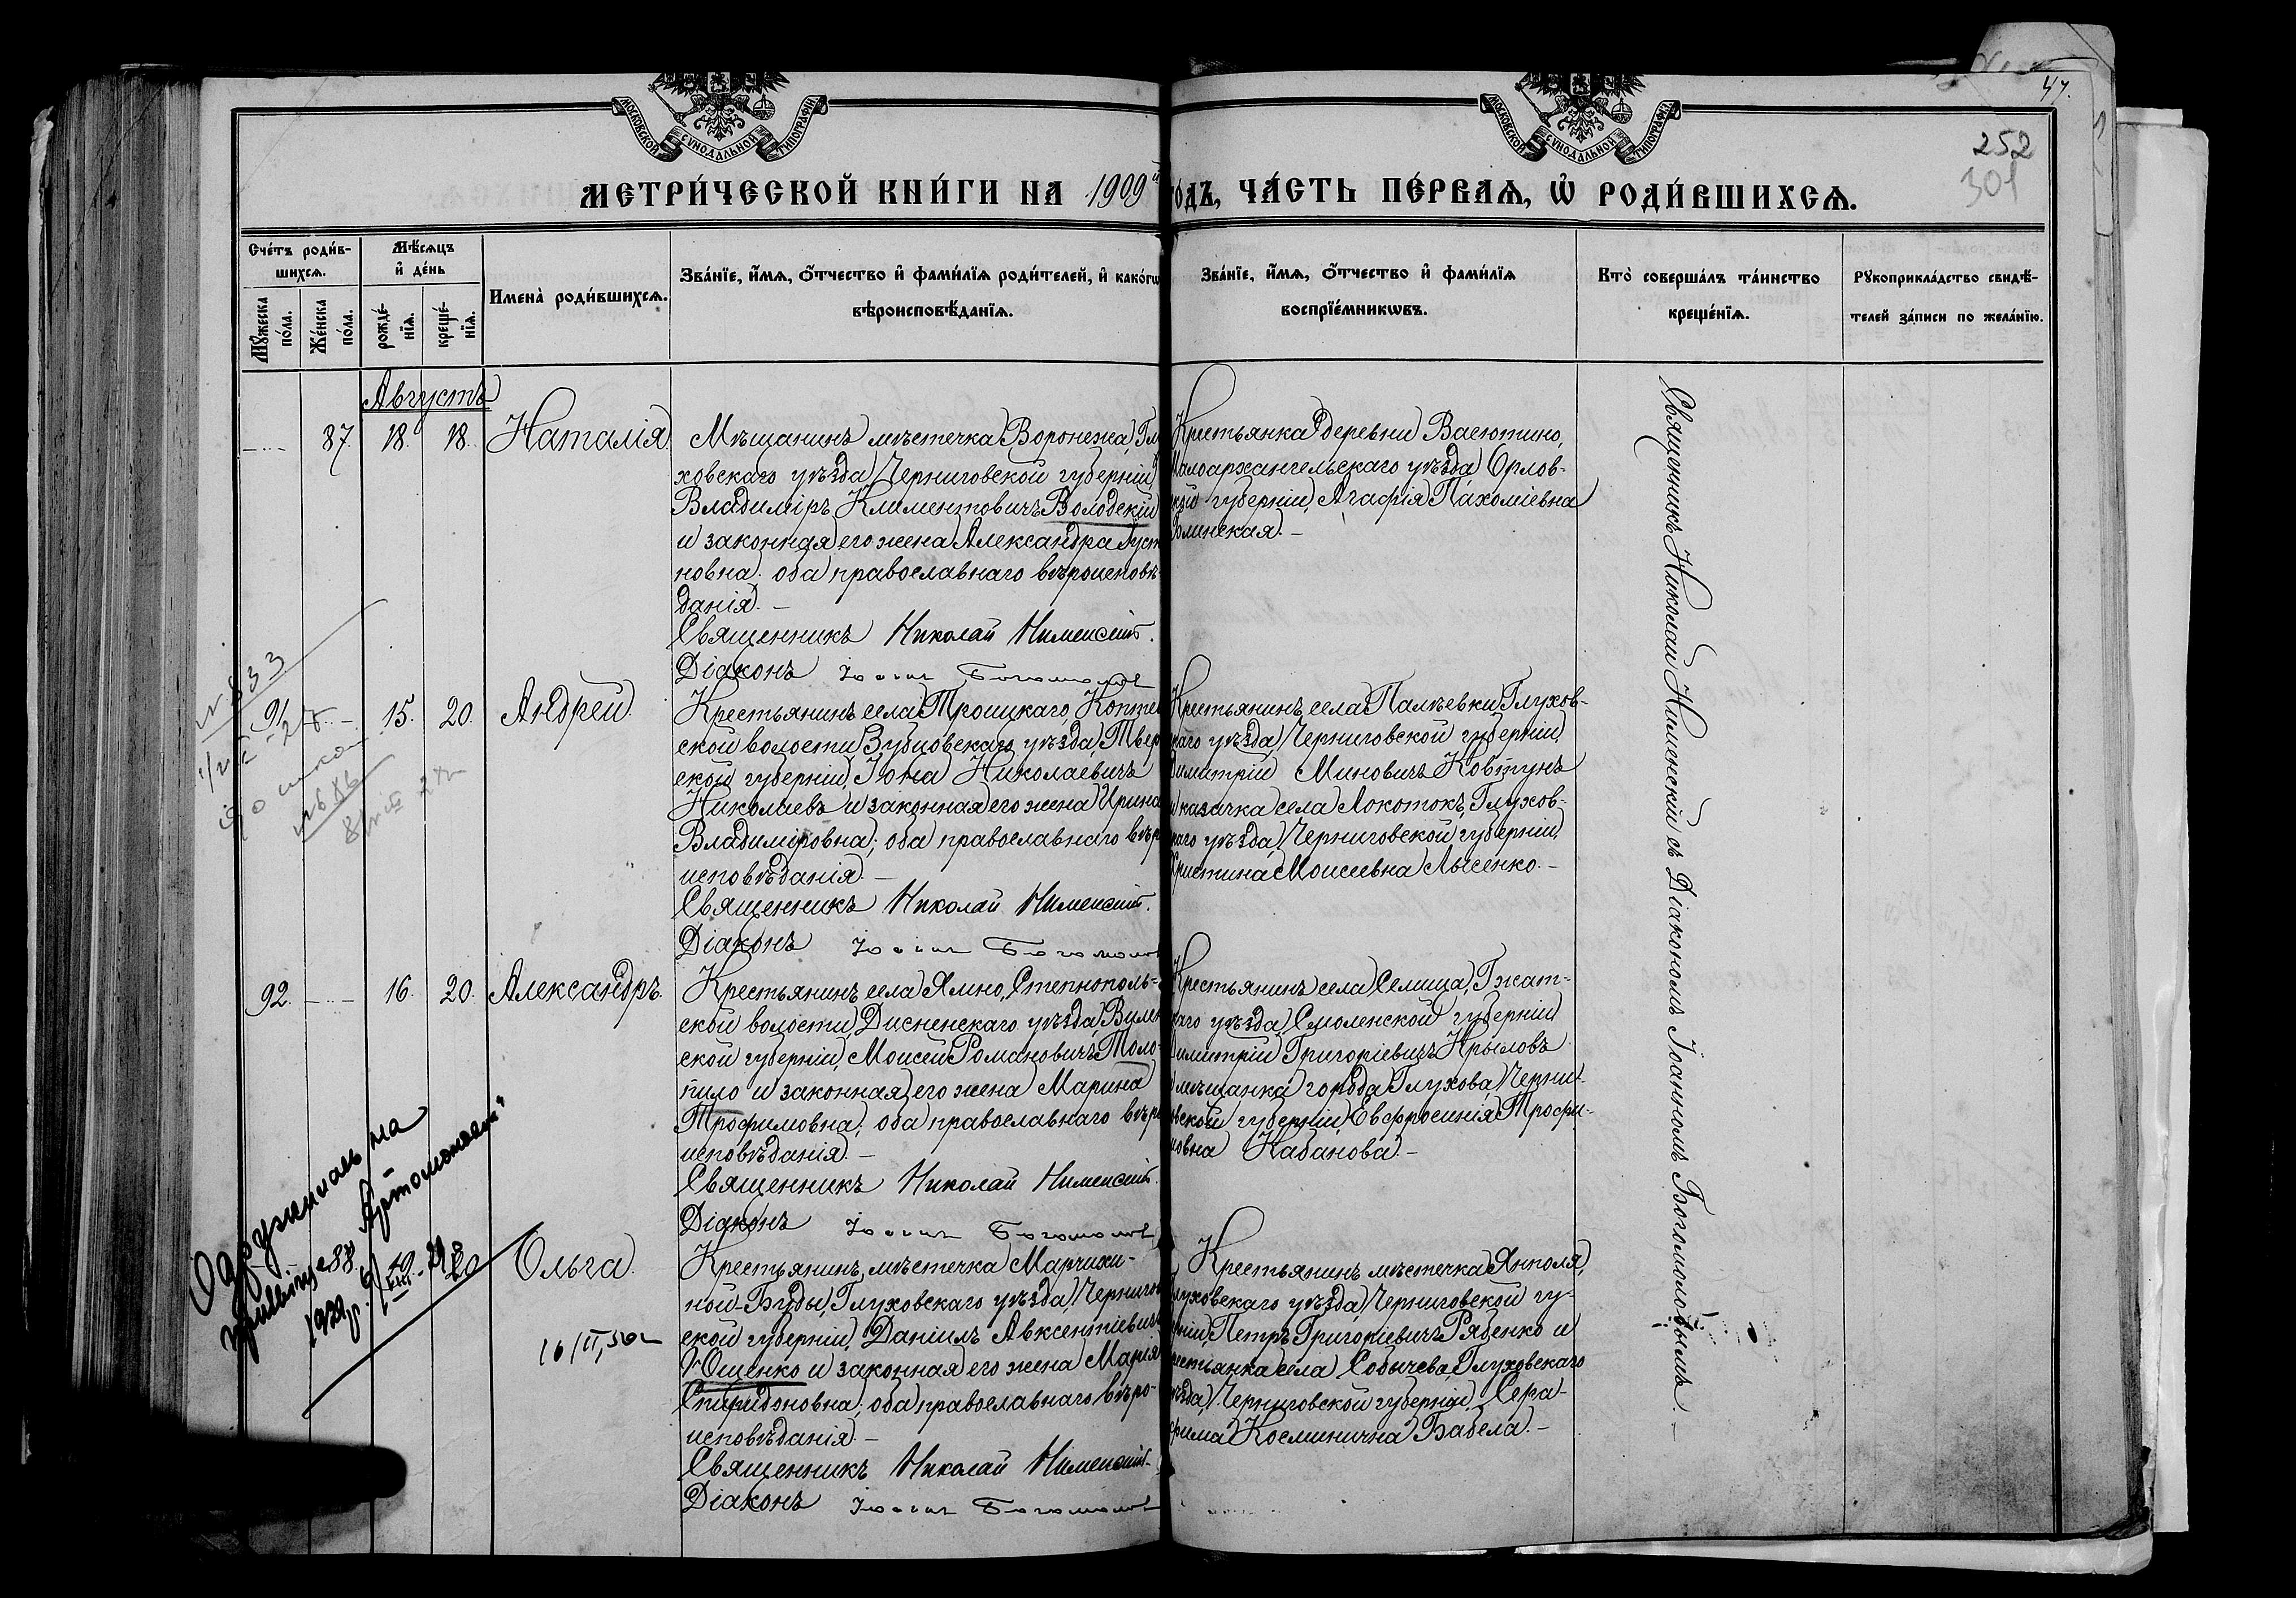 47.
252
301
МОСКОВСКОЙ СѴНОДАЛЬНОЙ ТИПОГРАФІИ
МОСКОВСКОЙ СѴНОДАЛЬНОЙ ТИПОГРАФІИ
МЕТРИ́ЧЕСКОЙ КНИ́ГИ НА 1909й ГО́ДЪ, ЧА́СТЬ ПЕ́РВАѦ, Ѡ РОДИ́ВШИХСѦ.
Сче́тъ роди́в-
шихсѧ.
Мꙋ́жеска по́ла.
Же́нска по́ла.
Мѣ́сѧцъ
и҆ де́нь
рожде́-
нїѧ.
креще́-
нїѧ.
Имена̀ роди́вшихсѧ.
Зва́нїе, и҆́мѧ, ѻ҆́тчество и҆ фами́лїѧ роди́телей, и҆ како́гѡ
вѣроисповѣ́данїѧ.
Зва́нїе, и҆́мѧ, ѻ҆́тчество и҆ фами́лїѧ
воспрїе́мникѡвъ.
Кто̀ соверша́лъ та́инство
креще́нїѧ.
Рꙋкоприкла́дство свидѣ́-
телей за́писи по жела́нїю.
Августъ
87. 18. 18. Наталія.
Мѣщанинъ мѣстечка Воронежа, Глу
ховскаго уѣзда, Черниговской губерніи,
Владиміръ Климентовичъ Володскій
и законная его жена Александра Густ
новна; оба православнаго вѣроисповѣ
данія.—
Священникъ Николай Нименскій.
Діаконъ Іоаннъ Богомоловъ
Крестьянка деревни Васютино,
Малоархангельскаго уѣзда, Орлов-
ской губерніи, Агафія Пахоміевна
оминская.—
91. 15. 20. Андрей.
Крестьянинъ села Троицкаго, Копте
ской волости, Зубцовскаго уѣзда, Твер
ской губерніи, Іона Николаевичъ
Николаевъ и законная его жена Ирина
Владиміровна; оба православнаго вѣро
исповѣданія.—
Священникъ Николай Нименскій.
Діаконъ Іоаннъ Богомоловъ
Крестьянинъ села Палѣевки, Глухов-
скаго уѣзда, Черниговской губерніи,
Димитрій Миновичъ Ковтунъ
и казачка села Локотокъ, Глухов-
скаго уѣзда, Черниговской губерніи,
Христина Моисеевна Лысенко.—
92. 16. 20. Александръ.
Крестьянинъ села Ямно, Степнополь-
ской волости, Дисненскаго уѣзда, Вилен
ской губерніи, Моисей Романовичъ Толо-
пило и законная его жена Марина
Трофимовна; оба православнаго вѣро
исповѣданія.—
Священникъ Николай Нименскій.
Діаконъ Іоаннъ Богомоловъ
Крестьянинъ села Селища, Гжат-
скаго уѣзда, Смоленской губерніи
Димитрій Григоріевичъ Крыловъ
и мѣщанка города Глухова, Черни-
говской губерніи, Евфросинія Трофи-
мовна Кабанова.—
88. 20 Ольга.
Крестьянинъ мѣстечка Марчихи-
ной-Буды, Глуховскаго уѣзда, Чернигов
ской губерніи, Даніилъ Авксентіевичъ
Ющенко и законная его жена Марія
Спиридоновна; оба православнаго вѣро-
исповѣданія.—
Священникъ Николай Нименскій
Діаконъ Іоаннъ Богомоловъ
Крестьянинъ мѣстечка Янполя,
Глуховскаго уѣзда, Черниговской гу-
берніи, Петръ Григоріевичъ Рябенко и
крестьянка села Собычева, Глуховскаго
уѣзда, Черниговской губерніи, Сера-
фима Косминична Бабела.—
Священникъ Николай Нименскій съ Діакономъ Іоанномъ Богомоловымъ.—